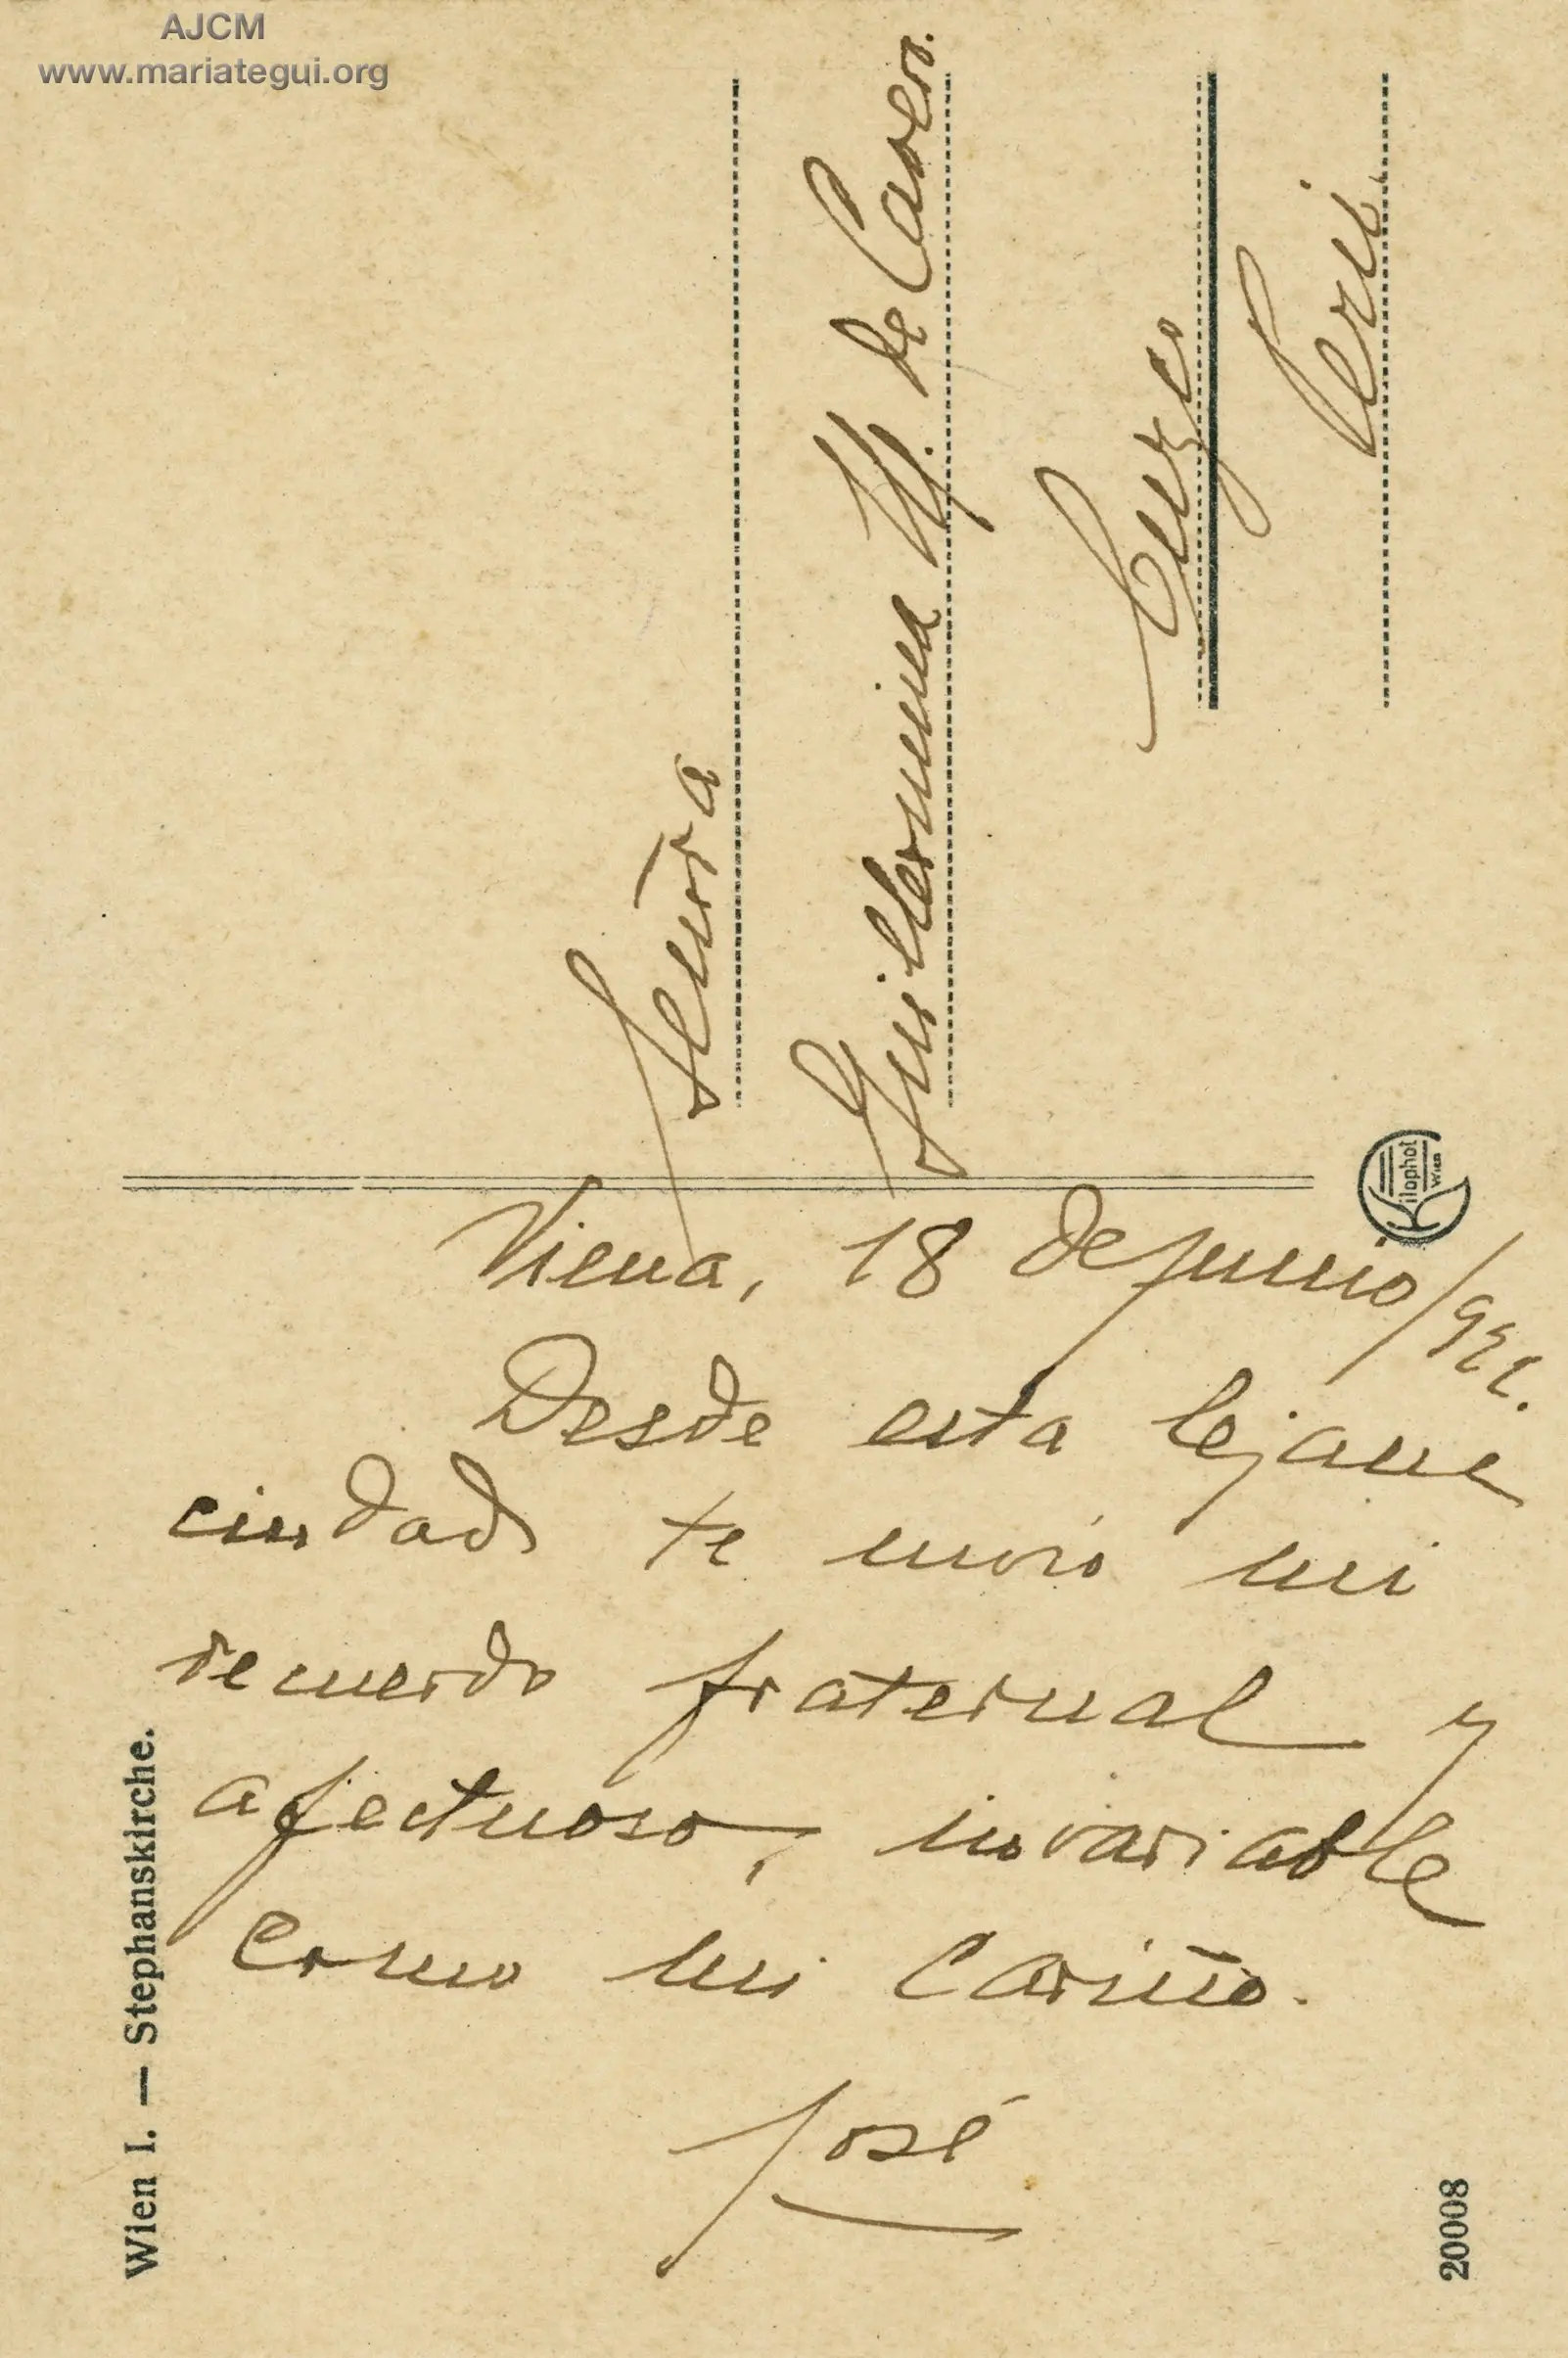 AJCM
www.mariategui.org
Señora
Guillermina M. de Cavero.
Cuzco
Perú.
ilophot
Wien
Viena, 18 de junio/922.
Desde esta lejana
ciudad te envío mi
recuerdo fraternal y
afectuoso, invariable
como mi cariño.
José
Wien I. — Stephanskirche.
20008